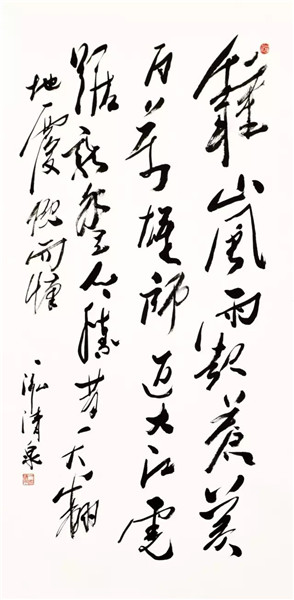 鍾山風雨起蒼黃
百萬雄師過大江虎
踞龍盤今勝昔天翻
地覆慨而慷
一泓清泉